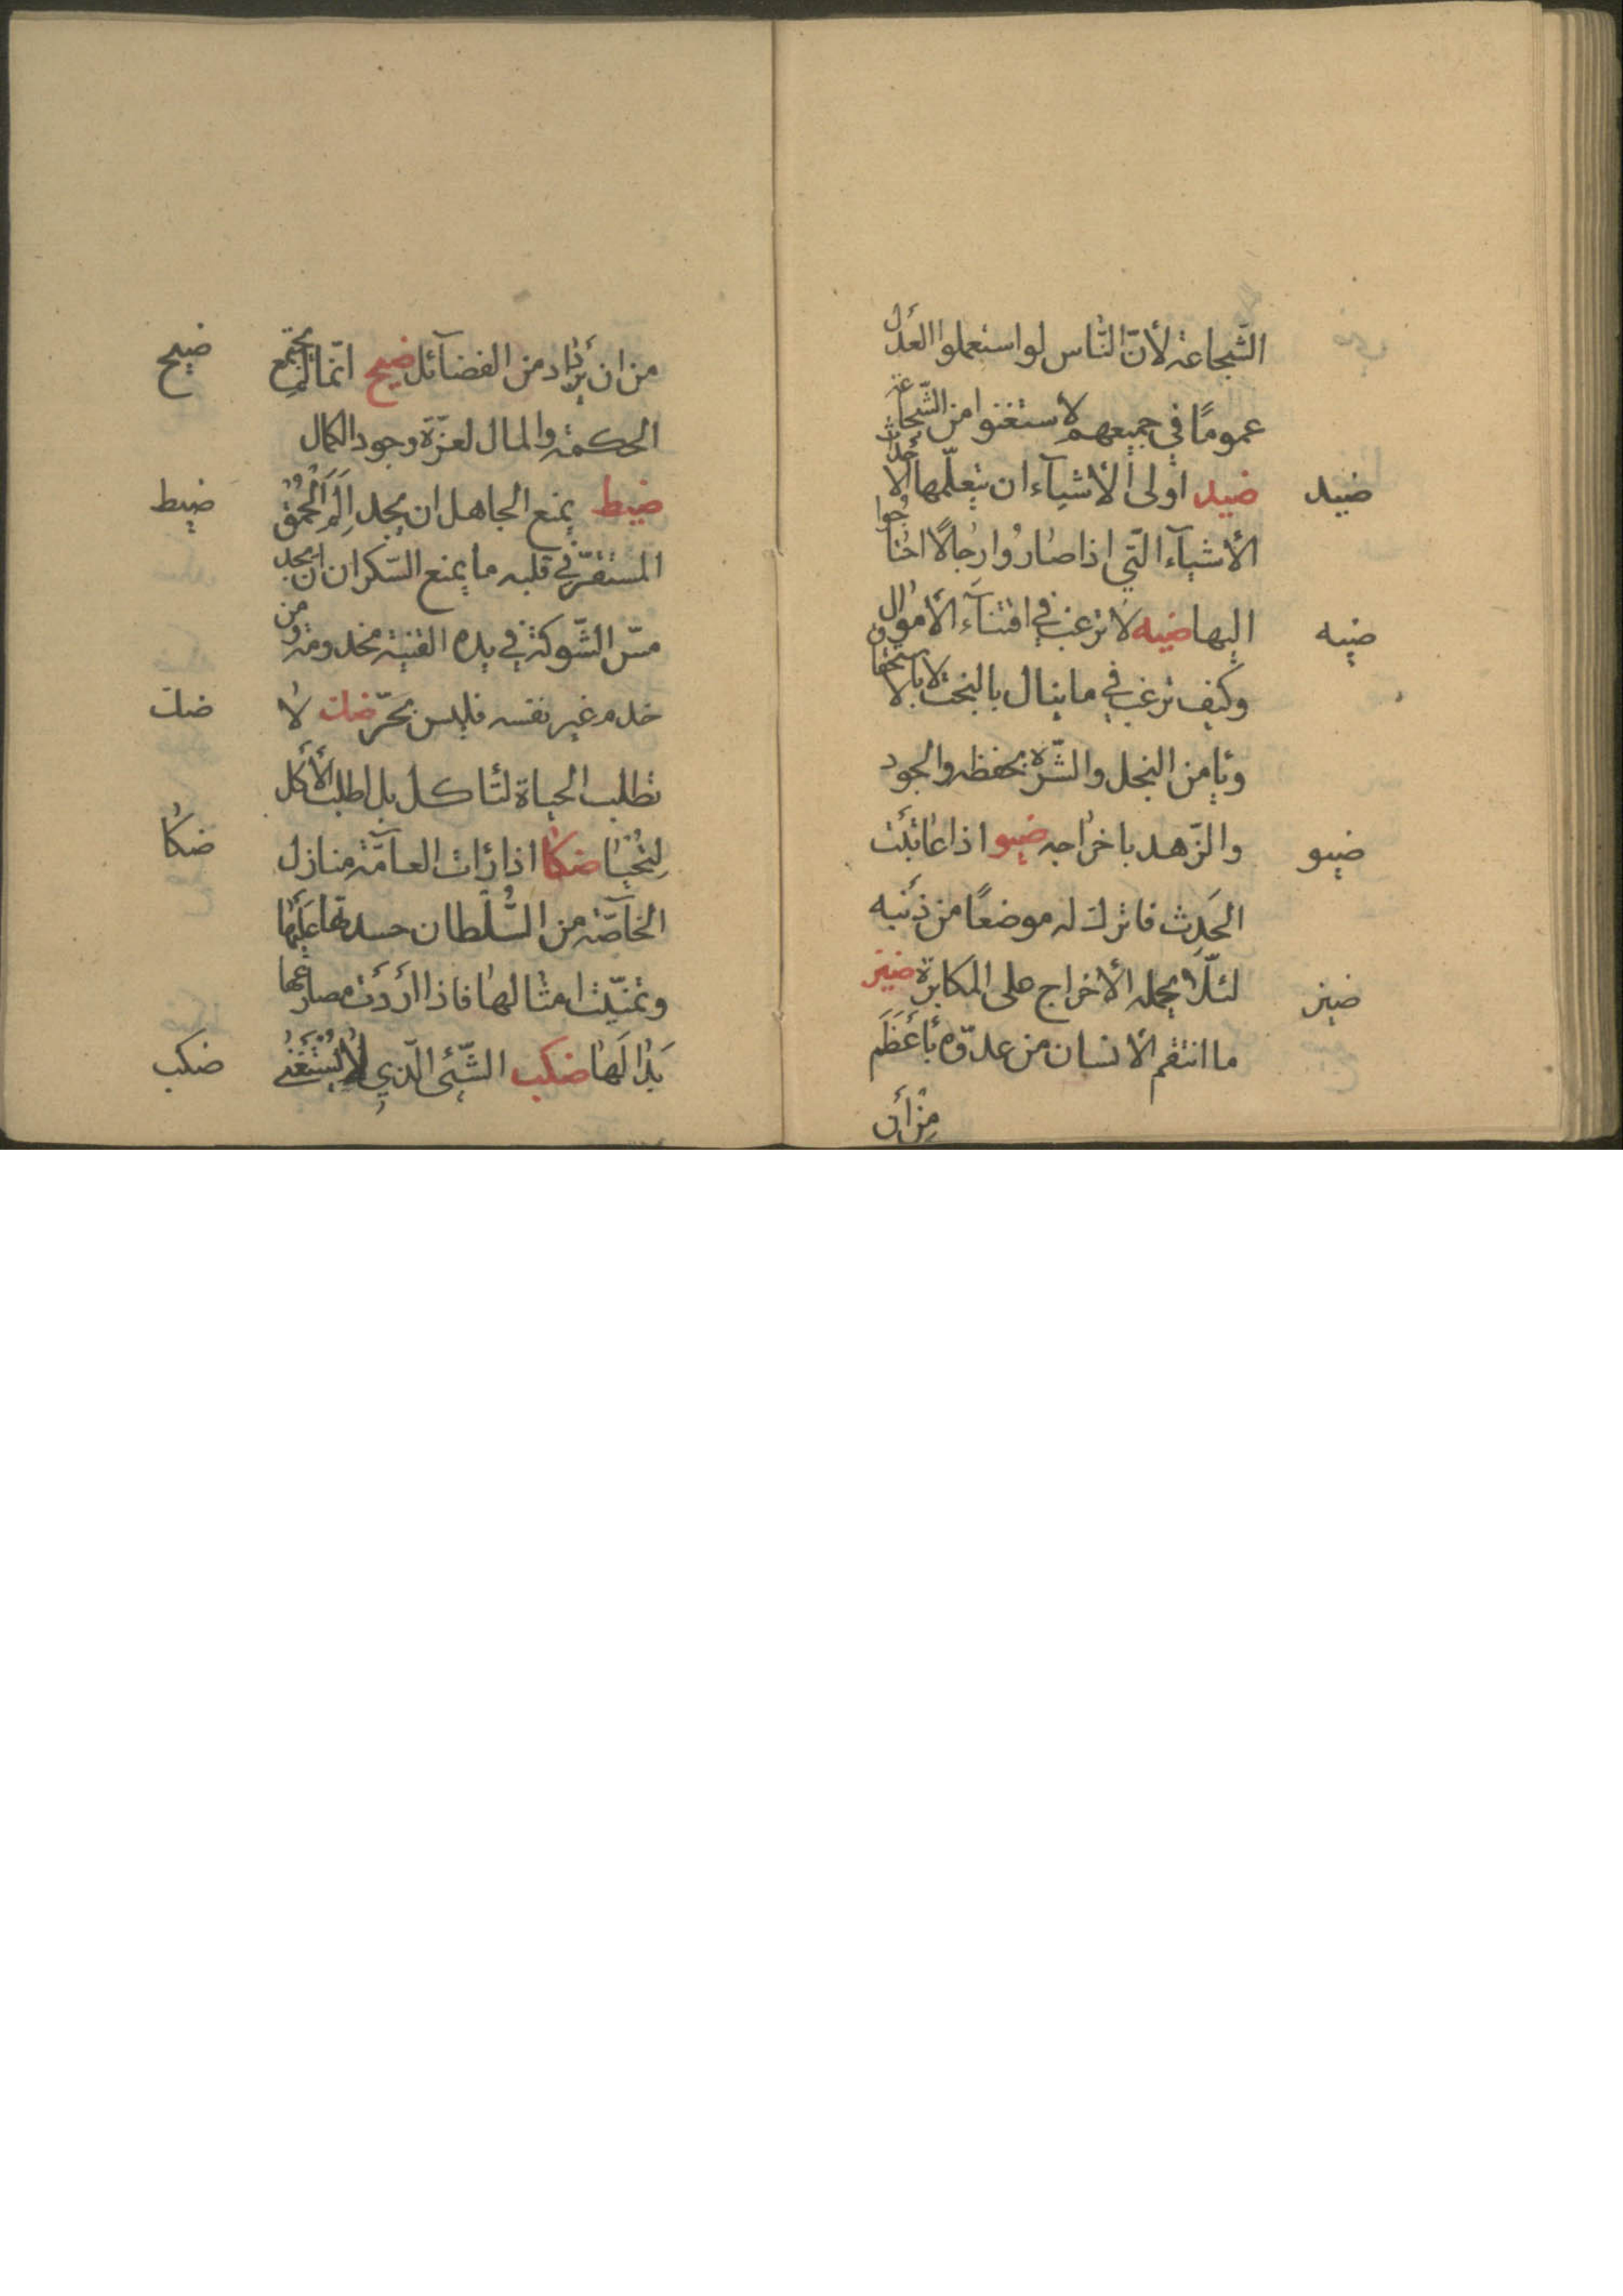 الشّجاعة لأنّ النّاس لو استعملوا العدل
عمومًا في جميعهم لاستغنوا من الشّجاعة
ضيد
ضيد اولى الأشيآء ان يتعلّمها الأحداث
الأشيآء الّتي اذا صاروا رجالًا احتاجوا
ضيه
اليها ضيه لا ترغب في اقتنآء الأموال
وكيف ترغب في ما ينال بالبخت لا بالاستحقاق
ويأمر البخل والشّره بحفظه والجود
ضيو
والزّهد باخراجه ضيو اذا عاتبت
الحدث فاترك له موضعًا من ذنبه
ضيز
لئلّا يحمله الأخراج على المكابرة ضيز
ما انتقم الأنسان من عدوّه بأعظم
من أن
ضيح
من ان يزداد من الفضآئل ضيح انّما لم يجتمع
الحكمة والمال لعزّة وجود الكمال
ضيط
ضيط يمنع الجاهل ان يجد الم الحمق
المستقرّ في قلبه ما يمنع السّكران ان يجد
مسّ الشّوكة في يده القنية مخدومة ومن
ضك
خدم غير نفسه فليس بحرّ ضك لا
تطلب الحياة لتأكل بل اطلب الأكل
ضكا
لتحيا ضكا اذا رأت العامّة منازل
الخآصّة من السّلطان حسدتها عليها
وتمنّت امثالها فاذا رأت مصارعها
ضكب
بدا لها ضكب الشّئ الّذي لا يستغني